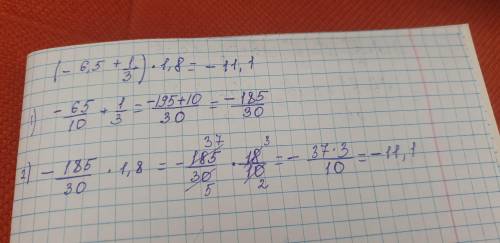 (- 6,5 + 1/3) · 1,8 = - 11,1
1) - 65/10 + 1/3 = -195+10/30 = -185/30
2) - 185/30 · 1,8 = - 185/30 · 18/10 = - 37·3/10 = -11,1
37 3
5 2